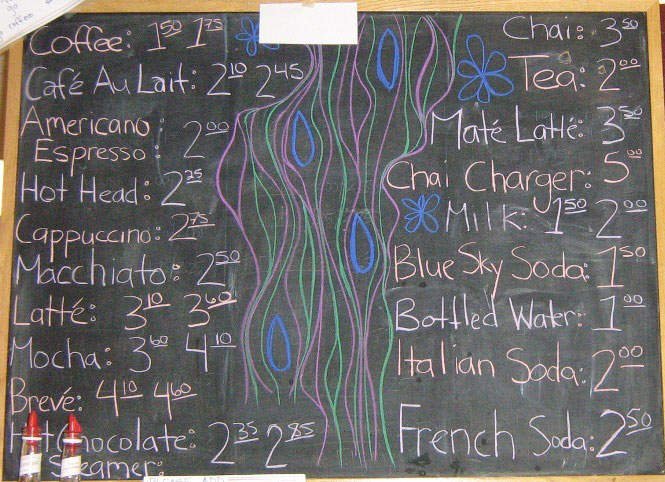 Coffee: 1.50 1.75
Café Au Lait: 2.10 2.45
Americano
Espresso: 2.00
Hot Head: 2.25
Cappuccino: 2.75
Macchiato: 2.50
Latté: 3.10 3.60
Mocha: 3.60 4.10
Brevé: 4.10 4.60
Hot Chocolate: 2.35 2.85
Steamer:
Chai: 3.50
Tea: 2.00
Maté Latté: 3.50
Chai Charger: 5.00
Milk: 1.50 2.00
Blue Sky Soda: 1.50
Bottled Water: 1.00
Italian Soda: 2.00
French Soda: 2.50